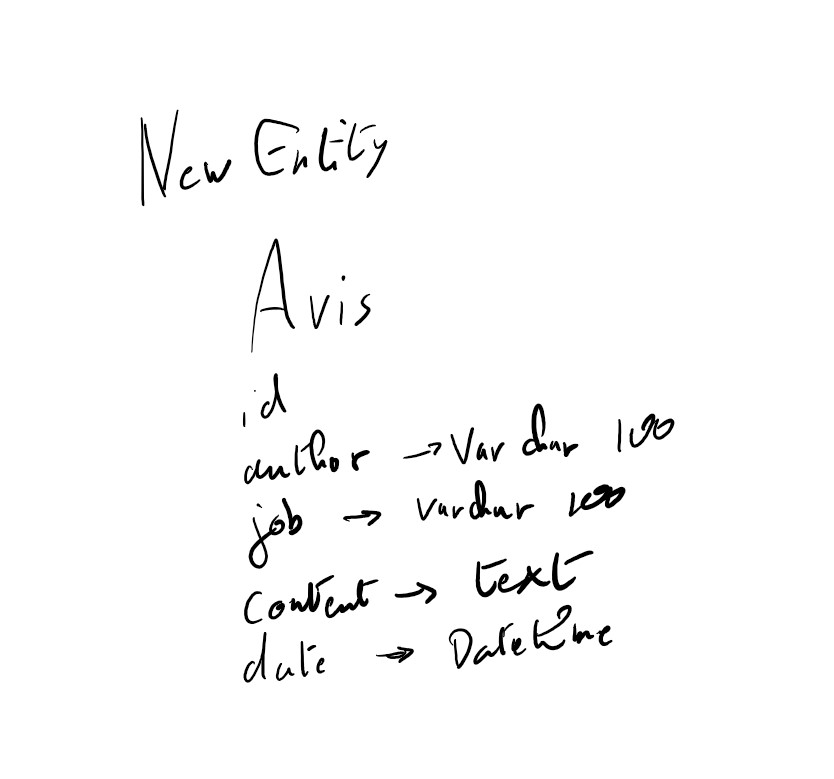 New Entity
Avis
id
author → Varchar 100
job → varchar 100
content → text
date → Datetime